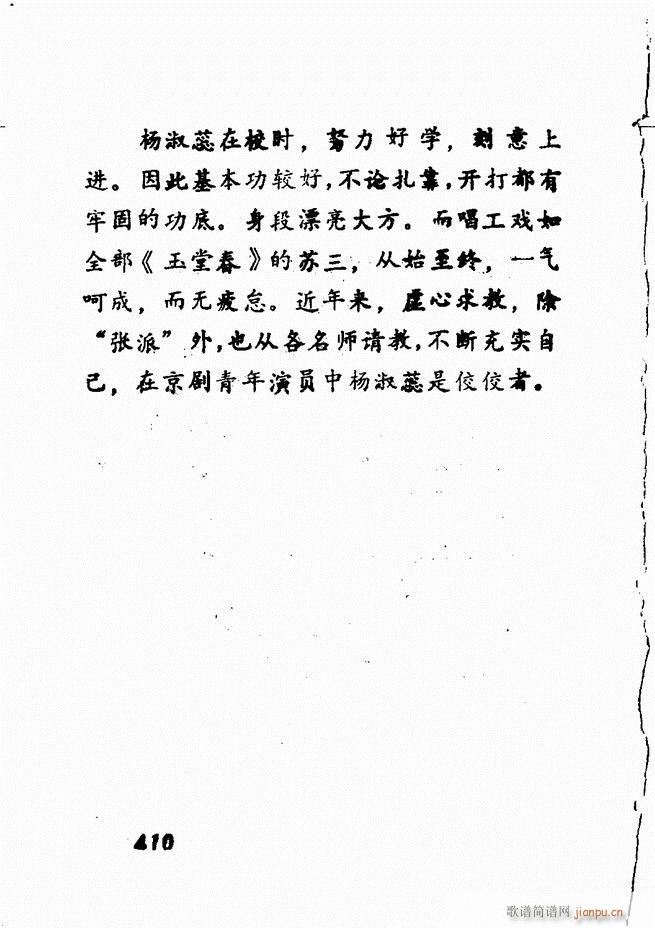 杨淑蕊在校时，努力好学，刻意上
进。因此基本功较好，不论扎靠，开打都有
牢固的功底。身段漂亮大方。而唱工戏如
全部《玉堂春》的苏三，从始至终，一气
呵成，而无疲怠。近年来，虚心求教，除
“张派”外，也从各名师请教，不断充实自
己，在京剧青年演员中杨淑蕊是佼佼者。
410
歌谱简谱网 jianpu.cn